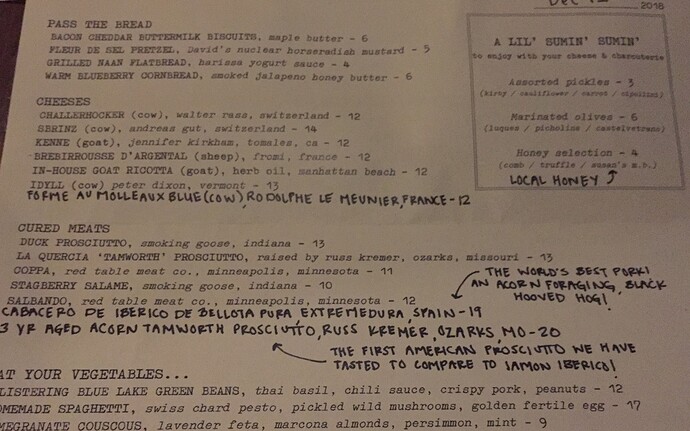 Dec 12 2016
PASS THE BREAD
BACON CHEDDAR BUTTERMILK BISCUITS, maple butter - 6
FLEUR DE SEL PRETZEL, David's nuclear horseradish mustard - 5
GRILLED NAAN FLATBREAD, harissa yogurt sauce - 4
WARM BLUEBERRY CORNBREAD, smoked jalapeno honey butter - 6
CHEESES
CHALLERHOCKER (cow), walter rass, switzerland - 12
SBRINZ (cow), andreas gut, switzerland - 14
KENNE (goat), jennifer kirkham, tomales, ca - 12
BREBIROUSSE D'ARGENTAL (sheep), fromi, france - 12
IN-HOUSE GOAT RICOTTA (goat), herb oil, manhattan beach - 12
IDYLL (cow) peter dixon, vermont - 13
FORME AU MOLLEAUX BLUE (COW), RODOLPHE LE MEUNIER, FRANCE - 12
A LIL' SUMIN' SUMIN'
to enjoy with your cheese & charcuterie
Assorted pickles - 3
(kirby / cauliflower / carrot / cipollini)
Marinated olives - 6
(luques / picholine / castelvetrano)
Honey selection - 4
(comb / truffle / susan's m.b.)
LOCAL HONEY
CURED MEATS
DUCK PROSCIUTTO, smoking goose, indiana - 13
LA QUERCIA 'TAMWORTH' PROSCIUTTO, raised by russ kremer, ozarks, missouri - 13
COPPA, red table meat co., minneapolis, minnesota - 11
STAGBERRY SALAME, smoking goose, indiana - 10
SALBANDO, red table meat co., minneapolis, minnesota - 12
THE WORLD'S BEST PORK!
AN ACORN FORAGING, BLACK
HOOVED HOG!
CABACERO DE IBERICO DE BELLOTA PURA EXTREMEDURA, SPAIN - 19
3 YR AGED ACORN TAMWORTH PROSCIUTTO, RUSS KREMER, OZARKS, MO - 20
THE FIRST AMERICAN PROSCIUTTO WE HAVE
TASTED TO COMPARE TO JAMON IBERICO!
AT YOUR VEGETABLES...
LISTERING BLUE LAKE GREEN BEANS, thai basil, chili sauce, crispy pork, peanuts - 12
OMEMADE SPAGHETTI, swiss chard pesto, pickled wild mushrooms, golden fertile egg - 17
MEGRANATE COUSCOUS, lavender feta, marcona almonds, persimmon, mint - 9